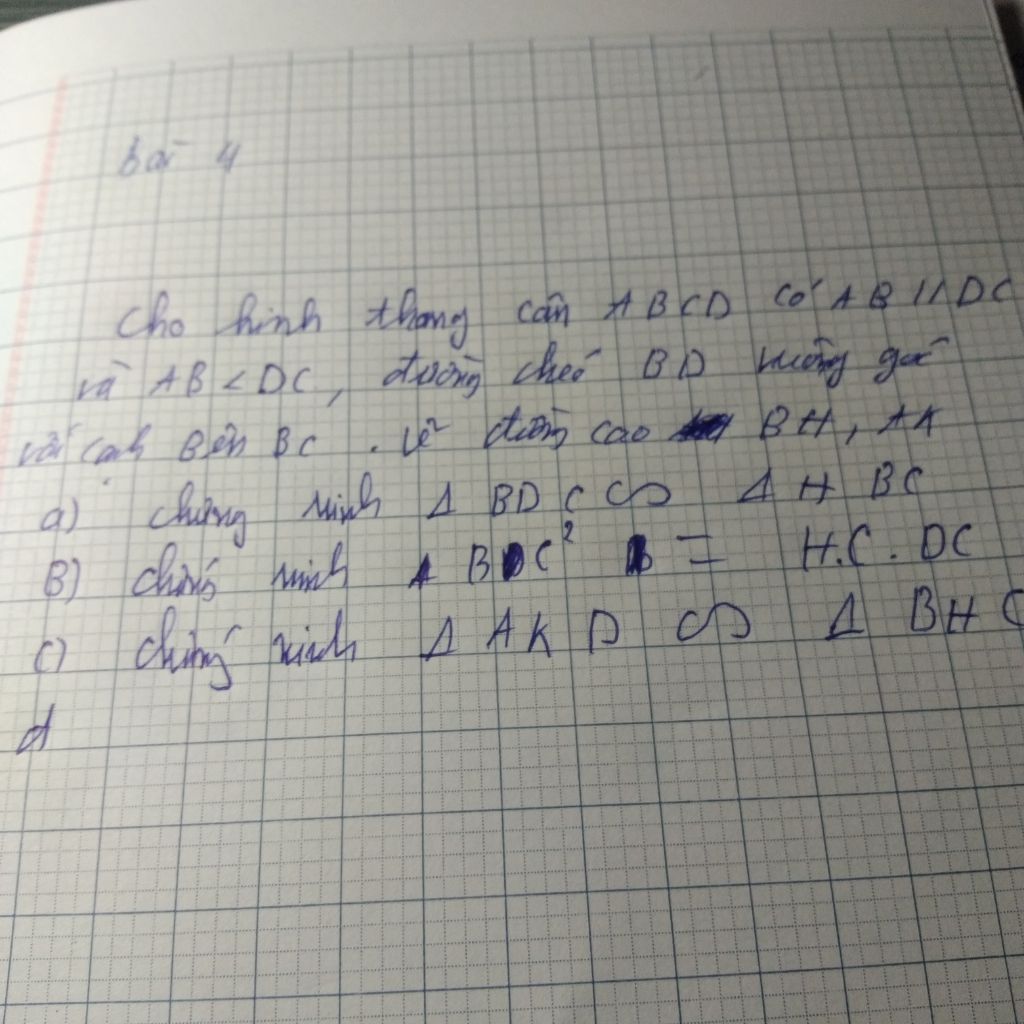 bài 4
Cho hình thang cân ABCD có AB // DC
và AB < DC, đường chéo BD vuông góc
với cạnh Bên BC. vẽ đường cao BH, AK
a) chứng minh Δ BDC ∽ Δ HBC
B) chứng minh BC² = H.C . DC
C) chứng minh Δ AKD ∽ Δ BHC
d